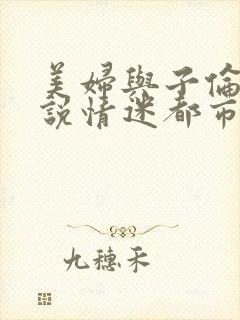 美婦與子倫
說情迷都市
九穗禾